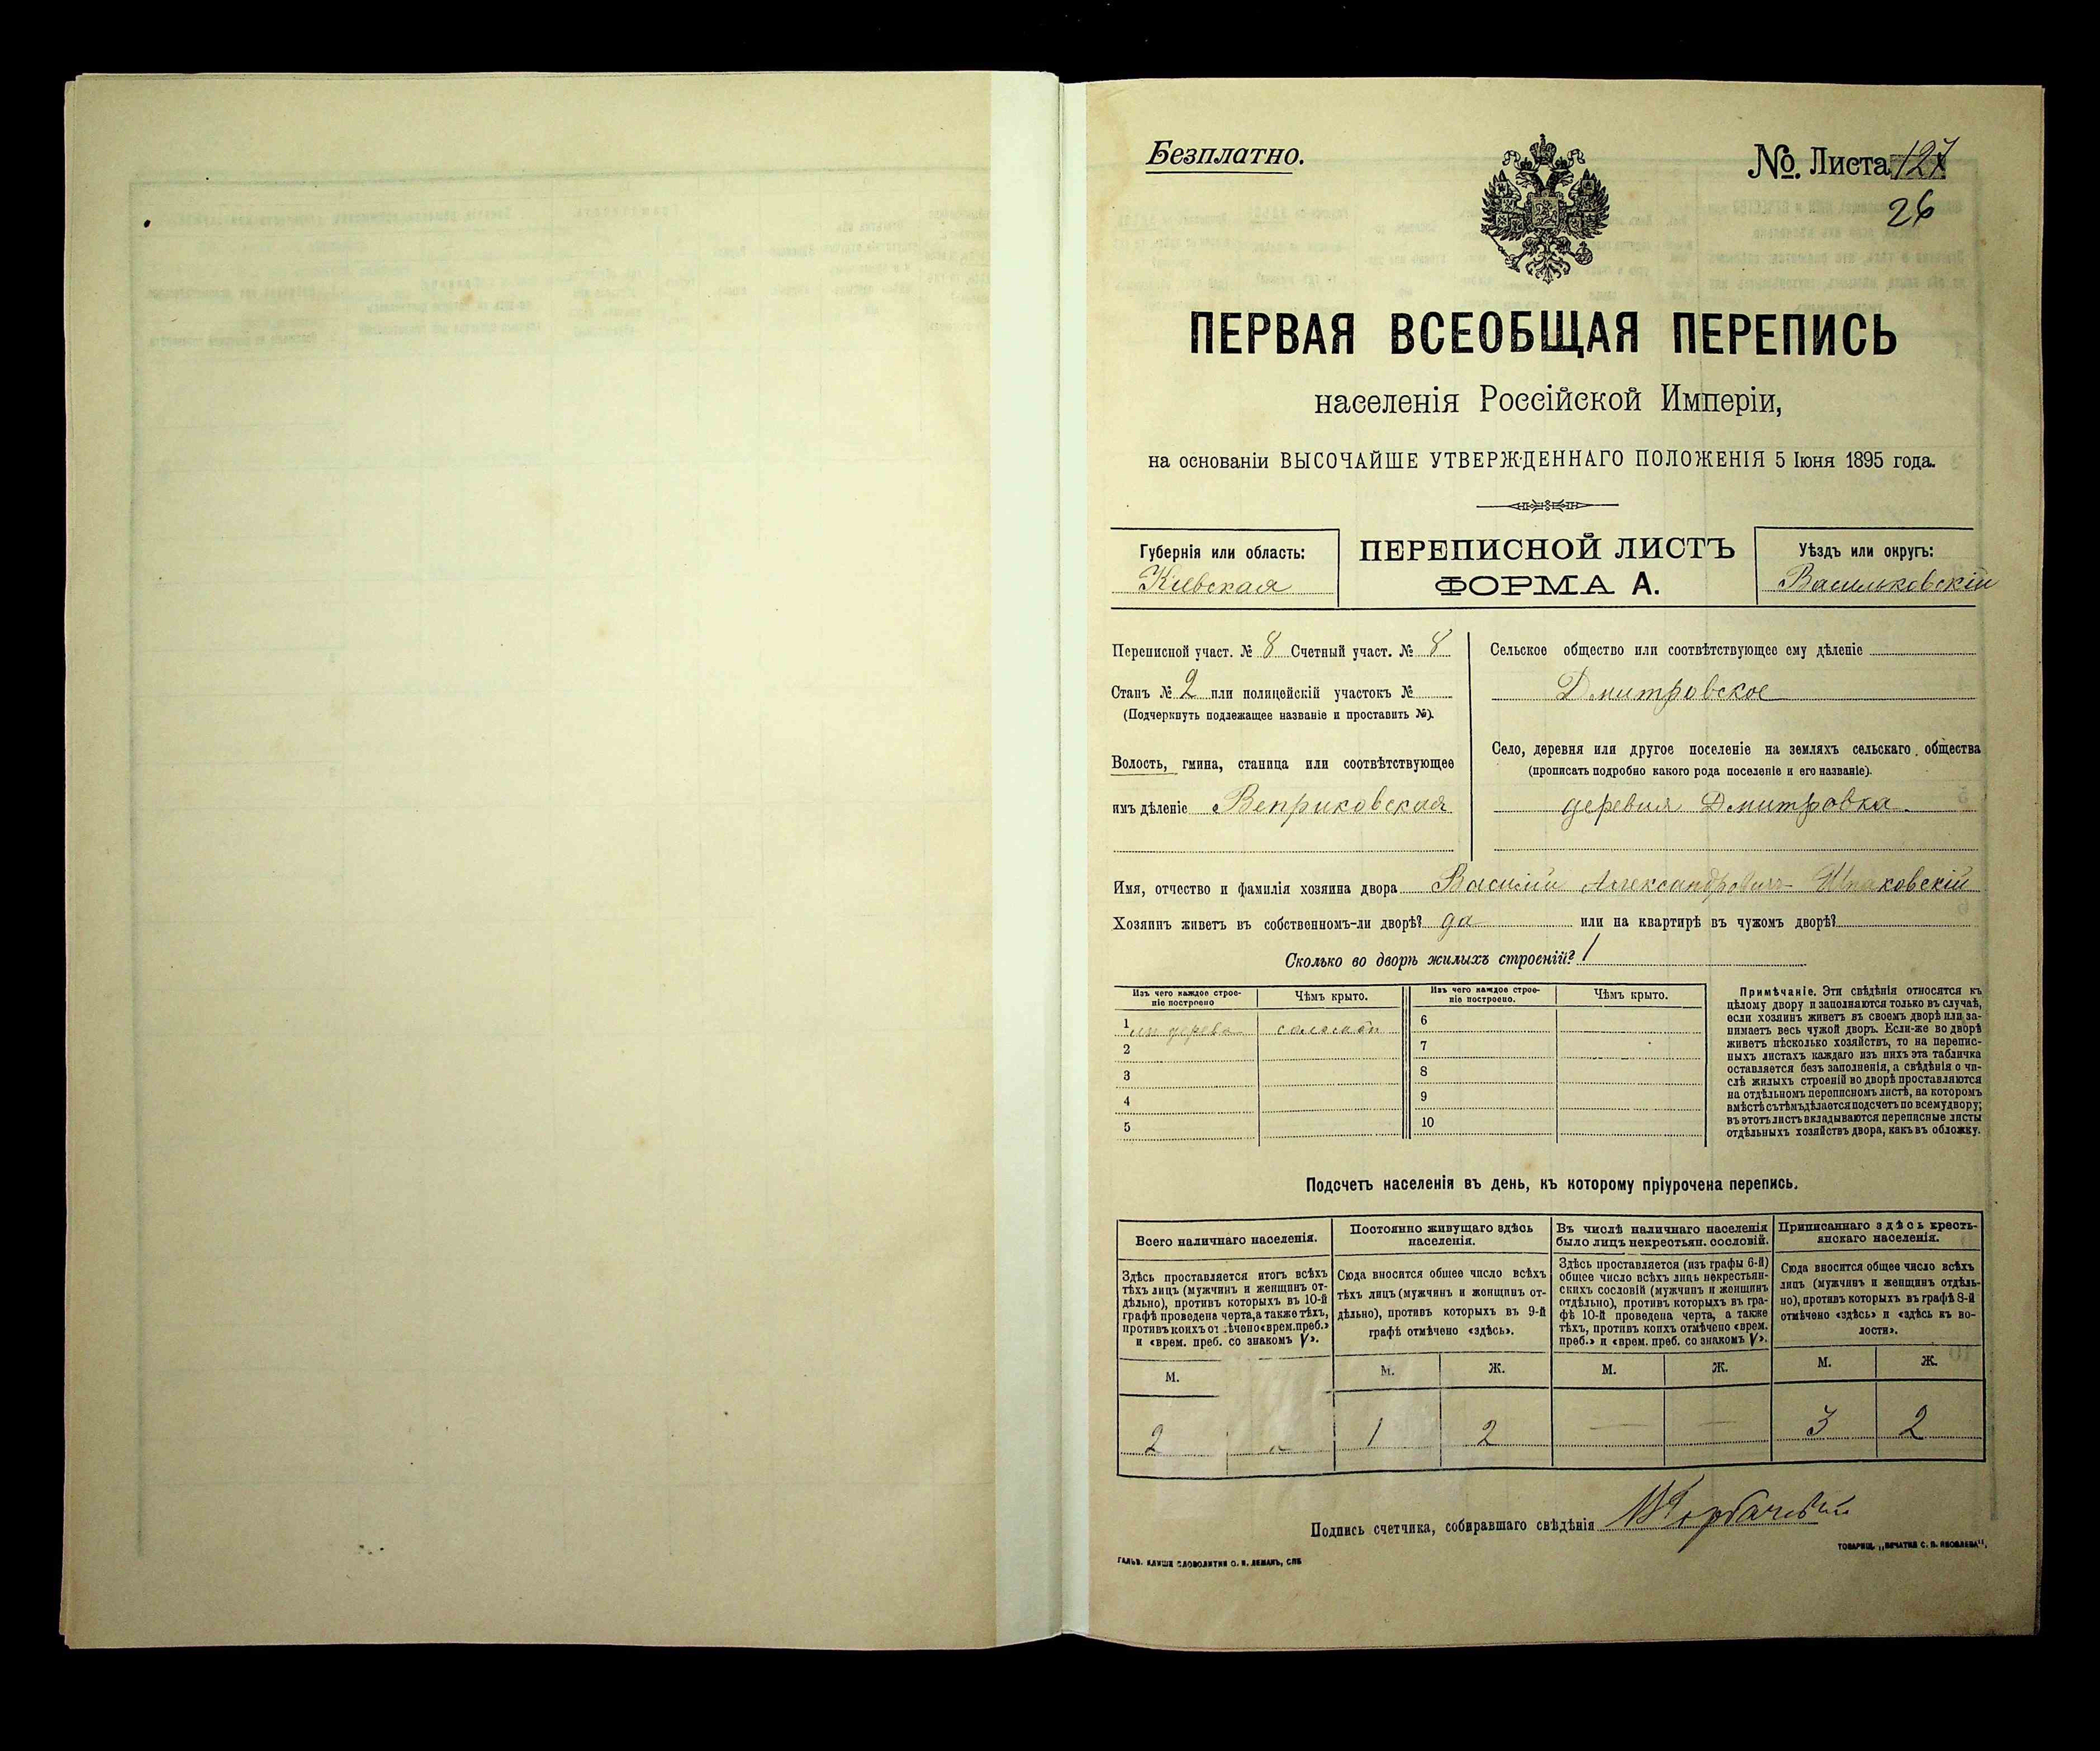 Безплатно.
№. Листа 127
26
ПЕРВАЯ ВСЕОБЩАЯ ПЕРЕПИСЬ
населенія Россійской Имперіи,
на основаніи ВЫСОЧАЙШЕ УТВЕРЖДЕННАГО ПОЛОЖЕНІЯ 5 Іюня 1895 года.
Губернія или область:
Кіевская
ПЕРЕПИСНОЙ ЛИСТЪ
ФОРМА А.
Уѣздъ или округъ:
Васильковскій
Переписной участ. № 8 Счетный участ. № 8
Станъ № 2 или полицейскій участокъ №
(Подчеркнуть подлежащее названіе и проставить №).
Волость, гмина, станица или соотвѣтствующее
имъ дѣленіе Веприковская
Сельское общество или соотвѣтствующее ему дѣленіе
Дмитровское
Село, деревня или другое поселеніе на земляхъ сельскаго общества
(прописать подробно какого рода поселеніе и его названіе).
деревня Дмитровка
Имя, отчество и фамилія хозяина двора Василій Александровичъ Шпаковскій
Хозяинъ живетъ въ собственномъ-ли дворѣ? да или на квартирѣ въ чужомъ дворѣ?
Сколько во дворѣ жилыхъ строеній? 1
Изъ чего каждое строе-
ніе построено
Чѣмъ крыто.
Изъ чего каждое строе-
ніе построено.
Чѣмъ крыто.
1 изъ дерева соломой 6
2 7
3 8
4 9
5 10
Примѣчаніе. Эти свѣдѣнія относятся къ
цѣлому двору и заполняются только въ случаѣ,
если хозяинъ живетъ въ своемъ дворѣ или за-
нимаетъ весь чужой дворъ. Если-же во дворѣ
живетъ нѣсколько хозяйствъ, то на перепис-
ныхъ листахъ каждаго изъ нихъ эта табличка
оставляется безъ заполненія, а свѣдѣнія о чи-
слѣ жилыхъ строеній во дворѣ проставляются
на отдѣльномъ переписномъ листѣ, на которомъ
вмѣстѣ съ тѣмъ дѣлается подсчетъ по всему двору;
въ этотъ листъ вкладываются переписные листы
отдѣльныхъ хозяйствъ двора, какъ въ обложку.
Подсчетъ населенія въ день, къ которому пріурочена перепись.
Всего наличнаго населенія.
Здѣсь проставляется итогъ всѣхъ
тѣхъ лицъ (мужчинъ и женщинъ от-
дѣльно), противъ которыхъ въ 10-й
графѣ проведена черта, а также тѣхъ,
противъ коихъ отмѣчено «врем. преб.»
и «врем. преб. со знакомъ V».
М.
2 "
Постоянно живущаго здѣсь
населенія.
Сюда вносится общее число всѣхъ
тѣхъ лицъ (мужчинъ и женщинъ от-
дѣльно), противъ которыхъ въ 9-й
графѣ отмѣчено «здѣсь».
М. Ж.
1 2
Въ числѣ наличнаго населенія
было лицъ некрестьян. сословій.
Здѣсь проставляется (изъ графы 6-й)
общее число всѣхъ лицъ некрестьян-
скихъ сословій (мужчинъ и женщинъ
отдѣльно), противъ которыхъ въ гра-
фѣ 10-й проведена черта, а также
тѣхъ, противъ коихъ отмѣчено «врем.
преб.» и «врем. преб. со знакомъ V».
М. Ж.
— —
Приписаннаго здѣсь кресть-
янскаго населенія.
Сюда вносится общее число всѣхъ
лицъ (мужчинъ и женщинъ отдѣль-
но), противъ которыхъ въ графѣ 8-й
отмѣчено «здѣсь» и «здѣсь къ во-
лости».
М. Ж.
3 2
Подпись счетчика, собиравшаго свѣдѣнія
ГАЛЬВ. КЛИШЕ СЛОВОЛИТНИ О. И. ЛЕМАНЪ, СПБ
ТОВАРИЩ. „ПЕЧАТНЯ С. П. ЯКОВЛЕВА".